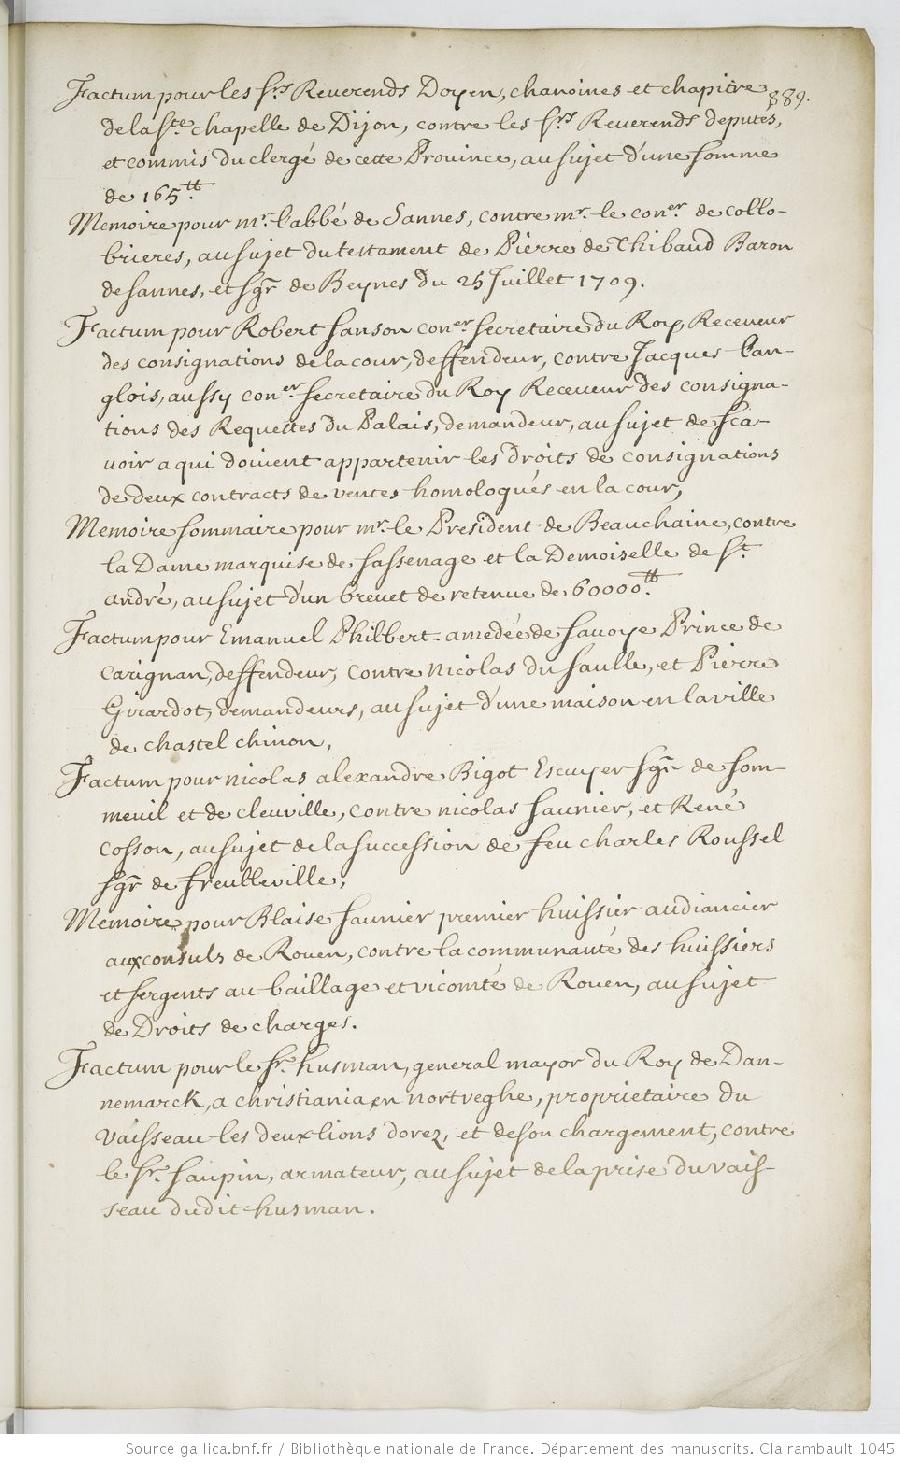 889.
Factum pour les Srs Reverends Doyen, chanoines et chapitre
de la Ste chapelle de Dijon, contre les Srs Reverends deputés,
et commis du clergé de cette Province, au sujet d'une somme
de 165tt
Memoire pour mr. l'abbé de Sannes, contre mr. le coner de collo-
brieres, au sujet du testament de Pierre de Thibaud Baron
de Sannes, et Sgr de Beynes du 25 Juillet 1709.
Factum pour Robert Sanson coner Secretaire du Roy, Receveur
des consignations de la cour, deffendeur, contre Jacques Lan-
glois, aussy coner Secretaire du Roy Receveur des consigna-
tions des Requettes du Palais, demandeur, au sujet de sca-
voir a qui doivent appartenir les droits de consignations
de deux contracts de ventes homologués en la cour,
Memoire sommaire pour mr. le President de Beauchaine, contre
la Dame marquise de Sassenage et la Demoiselle de St.
andré, au sujet d'un brevet de retenue de 60000tt.
Factum pour Emanuel Philbert-amedée de Savoye Prince de
Carignan, deffendeur, contre nicolas du Saulle, et Pierre
Girardot, demandeurs, au sujet d'une maison en la ville
de chastel chinon,
Factum pour nicolas alexandre Bigot Escuyer Sgr de Som-
meuil et de cleuville, contre nicolas Saunier, et René
Cosson, au sujet de la succession de feu charles Roussel
Sgr de freulleville,
Memoire pour Blaise Saunier premier huissier audiancier
aux consuls de Rouen, contre la communauté des huissiers
et sergents au baillage et vicomté de Rouen, au sujet
de Droits de charges.
Factum pour le Sr. husman, general mayor du Roy de Dan-
nemarck, a christiania en nortveghe, proprietaire du
Vaisseau les deux lions dorez, et de son chargement, contre
le Sr. Saupin, armateur, au sujet de la prise du vais-
seau dudit husman.
Source gallica.bnf.fr / Bibliothèque nationale de France. Département des manuscrits. Clairambault 1045